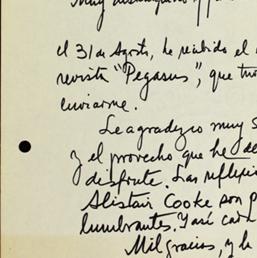 Muy distinguido
el 31 de Agosto, he recibido el
revista "Pegasus", que
enviarme.
Le agradezco muy
y el provecho que he de
disfrute. Las
Alistair Cooke son
lumbrantes. Y así cada
Mil gracias, y le